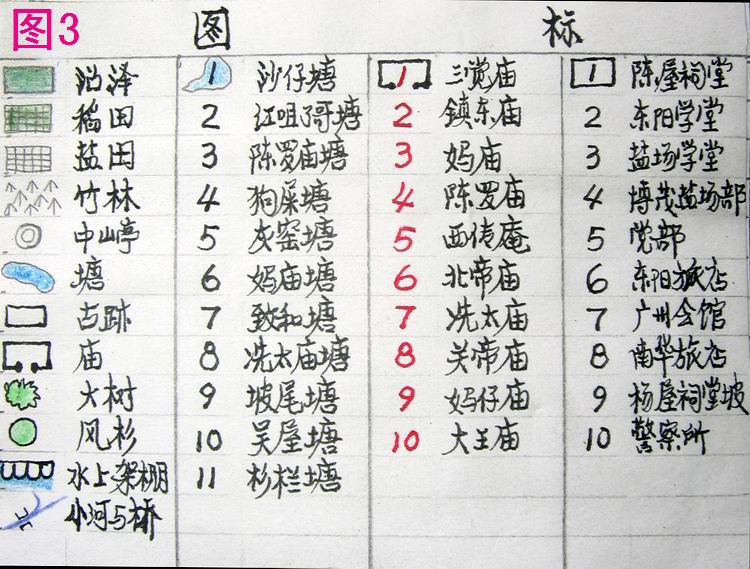 图3
图 标
沼泽 1 沙仔塘 1 三觉庙 1 陈屋祠堂
稻田 2 江咀哥塘 2 镇东庙 2 东阳学堂
盐田 3 陈罗庙塘 3 妈庙 3 盐场学堂
竹林 4 狗屎塘 4 陈罗庙 4 博茂盐场部
中山亭 5 灰窑塘 5 西传庵 5 党部
塘 6 妈庙塘 6 北帝庙 6 东阳旅店
古跡 7 致和塘 7 冼太庙 7 广州会馆
庙 8 冼太庙塘 8 关帝庙 8 南华旅店
大树 9 坡尾塘 9 妈仔庙 9 杨屋祠堂坡
风杉 10 吴屋塘 10 大王庙 10 警察所
水上架棚 11 杉栏塘
小河与桥